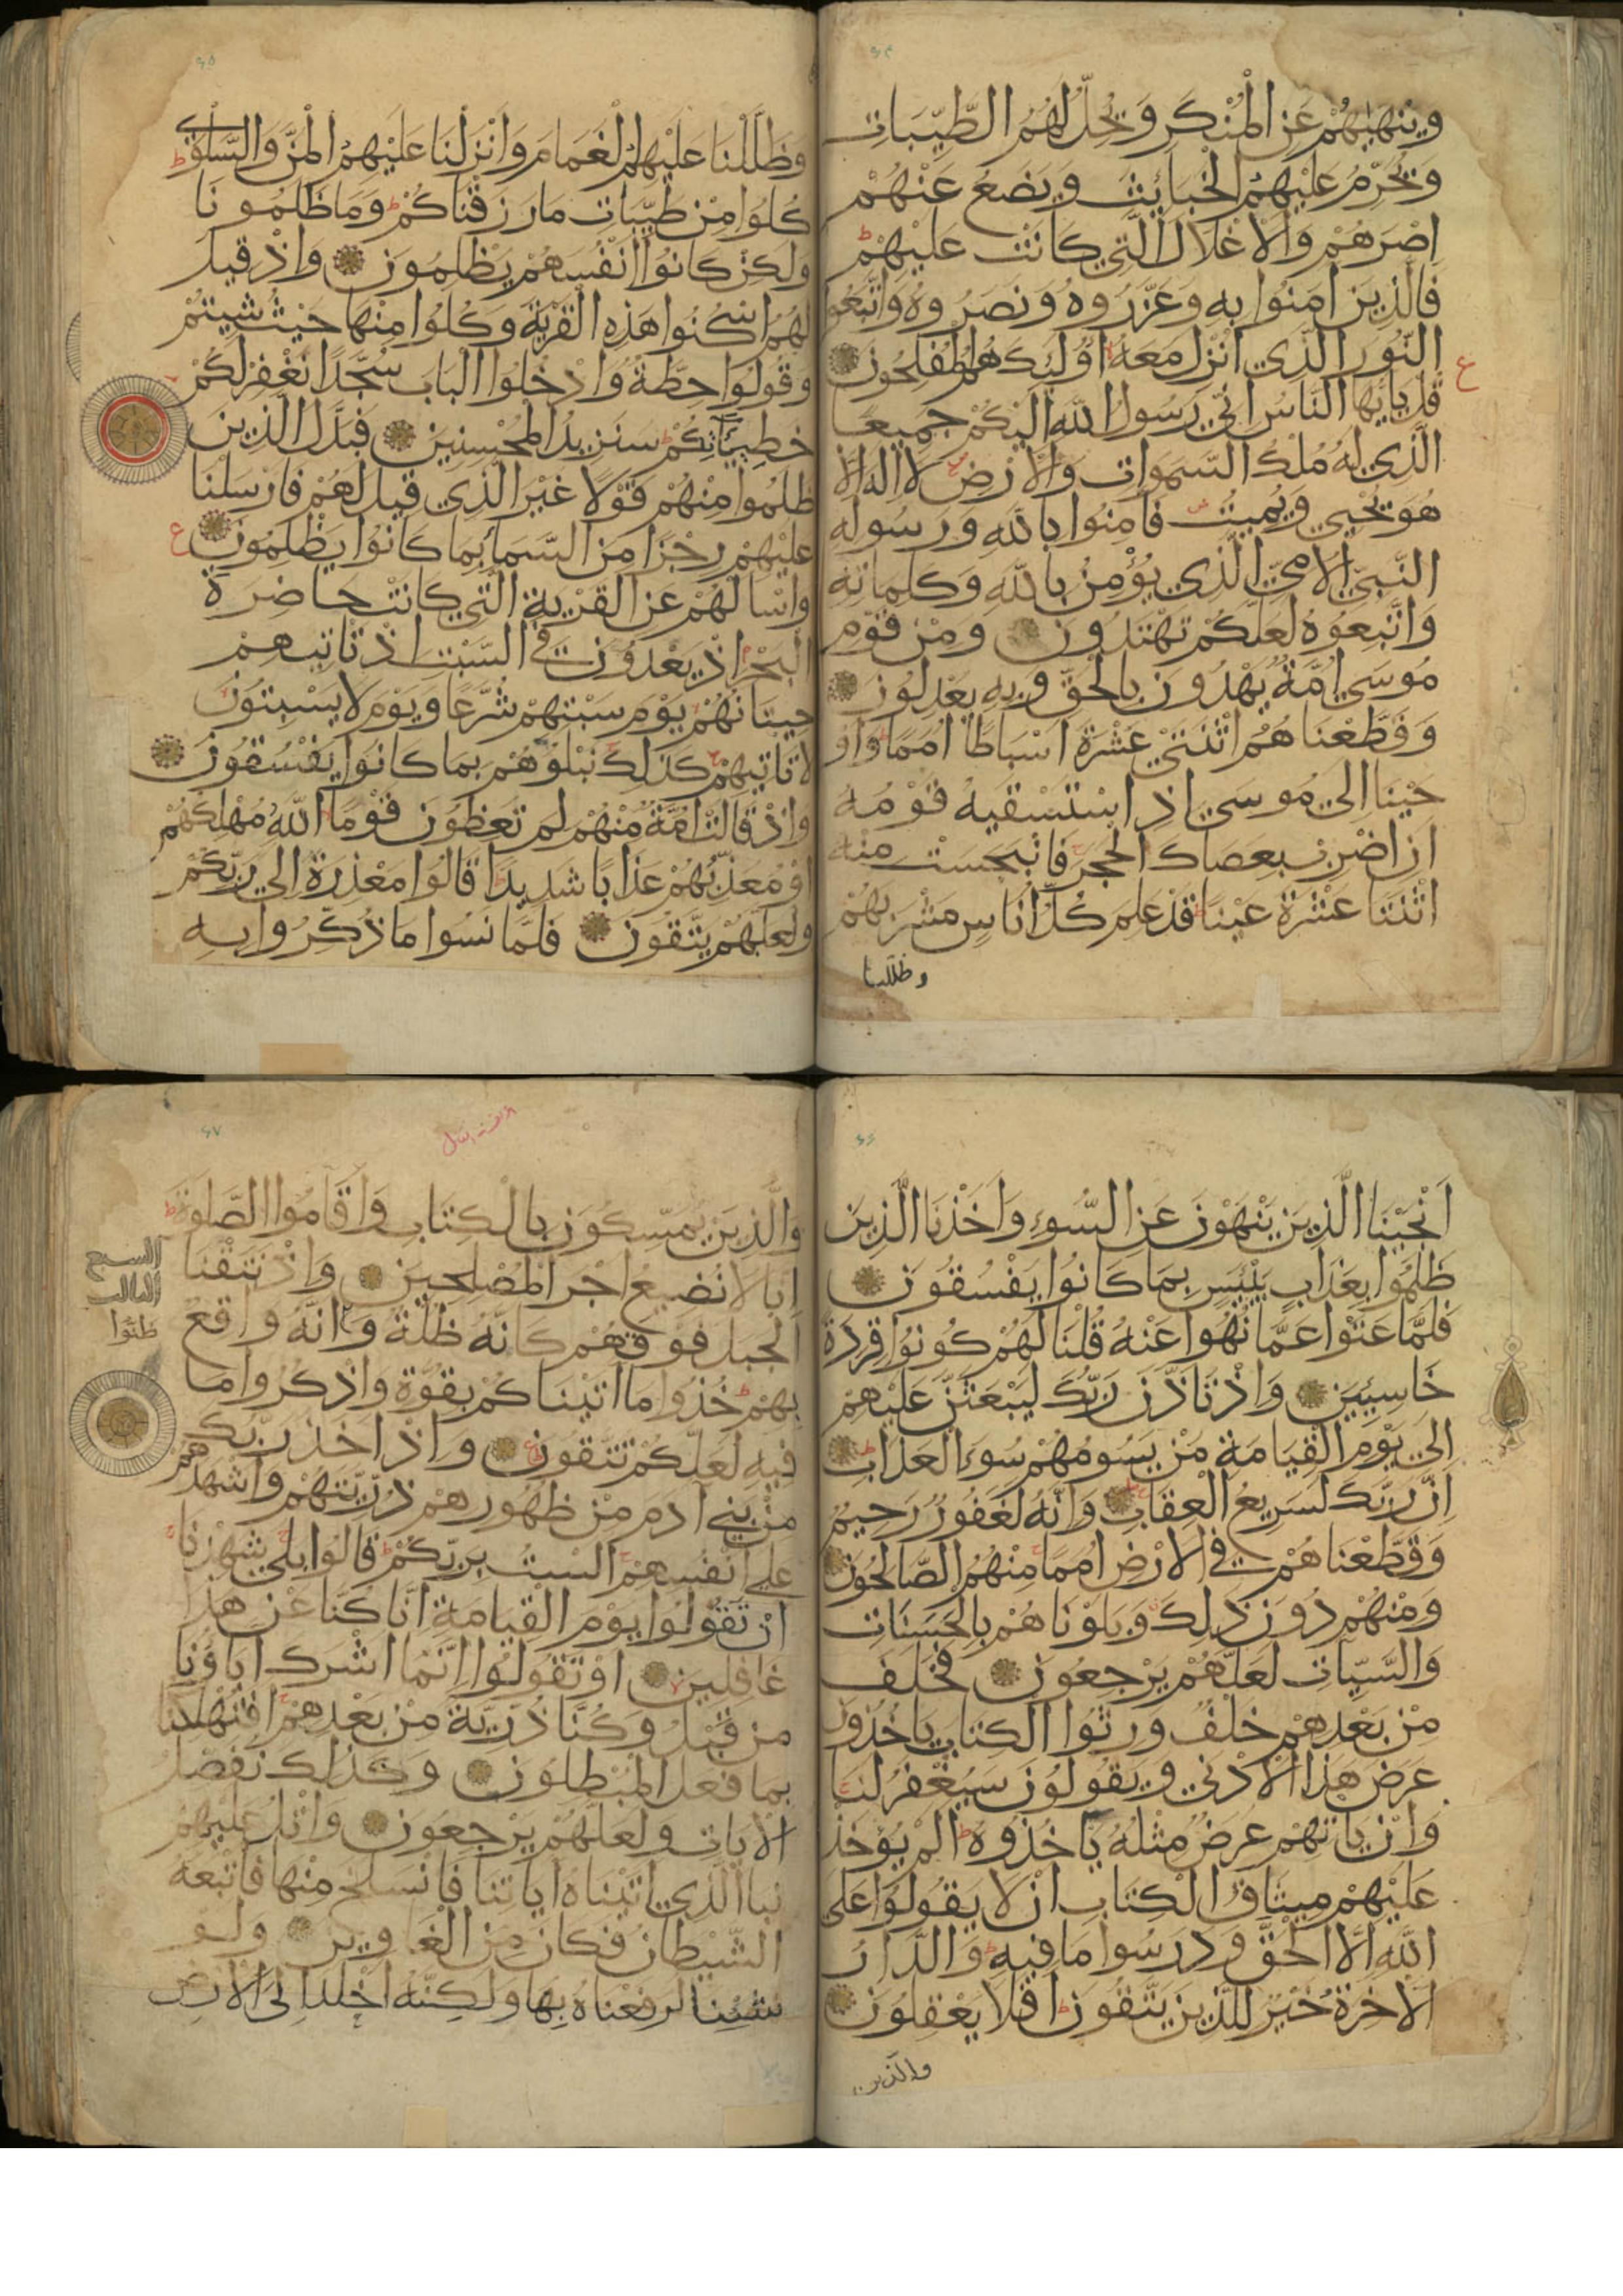 وينهيهم عن المنكر ويحل لهم الطيبات
ويحرم عليهم الخبائث ويضع عنهم
اصرهم والاغلال التي كانت عليهم
فالذين امنوا به وعزروه ونصروه واتبعوا
النور الذي انزل معه اولئك هم المفلحون
قل ياايها الناس اني رسول الله اليكم جميعا
الذي له ملك السموات والارض لا اله الا
هو يحيي ويميت فامنوا بالله ورسوله
النبي الامي الذي يؤمن بالله وكلماته
واتبعوه لعلكم تهتدون ومن قوم
موسى امة يهدون بالحق وبه يعدلون
وقطعناهم اثنتي عشرة اسباطا امما واو
حينا الى موسى اذ استسقيه قومه
ان اضرب بعصاك الحجر فانبجست منه
اثنتا عشرة عينا قد علم كل اناس مشربهم
وظللنا
وظللنا عليهم الغمام وانزلنا عليهم المن والسلوى
كلوا من طيبات ما رزقناكم وما ظلمونا
ولكن كانوا انفسهم يظلمون واذ قيل
لهم اسكنوا هذه القرية وكلوا منها حيث شيتم
وقولوا حطة وادخلوا الباب سجدا نغفر لكم
خطيئاتكم سنزيد المحسنين فبدل الذين
ظلموا منهم قولا غير الذي قيل لهم فارسلنا
عليهم رجزا من السما بما كانوا يظلمون
واسالهم عن القرية التي كانت حاضرة
البحر اذ يعدون في السبت اذ تاتيهم
حيتانهم يوم سبتهم شرعا ويوم لا يسبتون
لا تاتيهم كذلك نبلوهم بما كانوا يفسقون
واذ قالت امة منهم لم تعظون قوما الله مهلكهم
او معذبهم عذابا شديدا قالوا معذرة الى ربكم
ولعلهم يتقون فلما نسوا ما ذكروا به
انجينا الذين ينهون عن السوء واخذنا الذين
ظلموا بعذاب بئيس بما كانوا يفسقون
فلما عتوا عما نهوا عنه قلنا لهم كونوا قردة
خاسئين واذ تاذن ربك ليبعثن عليهم
الى يوم القيامة من يسومهم سوء العذاب
ان ربك لسريع العقاب وانه لغفور رحيم
وقطعناهم في الارض امما منهم الصالحون
ومنهم دون ذلك وبلوناهم بالحسنات
والسيات لعلهم يرجعون فخلف
من بعدهم خلف ورثوا الكتاب ياخذون
عرض هذا الادنى ويقولون سيغفر لنا
وان ياتهم عرض مثله ياخذوه الم يؤخذ
عليهم ميثاق الكتاب ان لا يقولوا على
الله الا الحق ودرسوا ما فيه والدار
الاخرة خير للذين يتقون افلا يعقلون
والذين
والذين يمسكون بالكتاب واقاموا الصلوة
انا لا نضيع اجر المصلحين واذ نتقنا
الجبل فوقهم كانه ظلة وظنوا انه واقع
بهم خذوا ما اتيناكم بقوة واذكروا ما
فيه لعلكم تتقون واذ اخذ ربك
من بني آدم من ظهورهم ذريتهم واشهدهم
على انفسهم الست بربكم قالوا بلى شهدنا
ان تقولوا يوم القيامة انا كنا عن هذا
غافلين او تقولوا انما اشرك اباؤنا
من قبل وكنا ذرية من بعدهم افتهلكنا
بما فعل المبطلون وكذلك نفصل
الايات ولعلهم يرجعون واتل عليهم
نبا الذي اتيناه اياتنا فانسلخ منها فاتبعه
الشيطان فكان من الغاوين ولو
شئنا لرفعناه بها ولكنه اخلد الى الارض